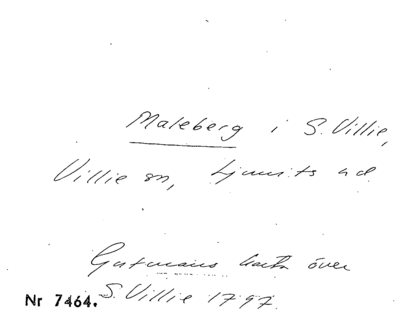 Maleberg i S. Villie,
Villie sn, Ljunits hd
Gutmans karta över
S. Villie 1797.
Nr 7464.